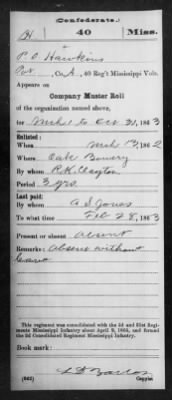 Confederate.
H 40 Miss.
P. O. Hawkins
Pvt., Co. A, 40 Reg't Mississippi Vols.
Appears on
Company Muster Roll
of the organization named above,
for Mch 1 to Oct 31, 1863
Enlisted:
When Mch 13, 1862
Where Oak Bowery
By whom R.K. Clayton
Period 3 yrs.
Last paid:
By whom A S Jones
To what time Feb 28, 1863
Present or absent Absent
Remarks: Absent without
leave
This regiment was consolidated with the 3d and 31st Regiments Mississippi Infantry about April 9, 1865, and formed the 3d Consolidated Regiment Mississippi Infantry.
Book mark:
(642)
Copyist.